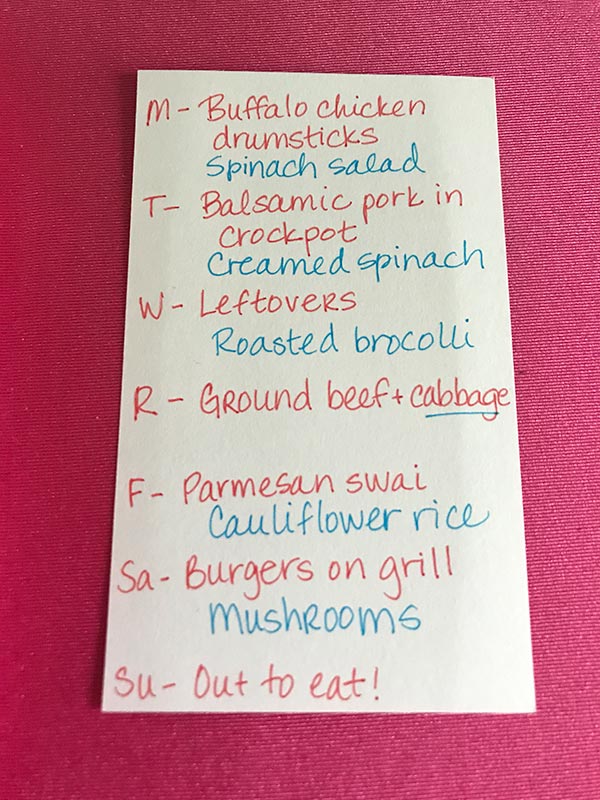 M- Buffalo chicken
drumsticks
Spinach salad
T- Balsamic pork in
crockpot
Creamed spinach
W- Leftovers
Roasted brocolli
R - Ground beef + cabbage
F- Parmesan swai
Cauliflower rice
Sa- Burgers on grill
Mushrooms
Su- Out to eat!